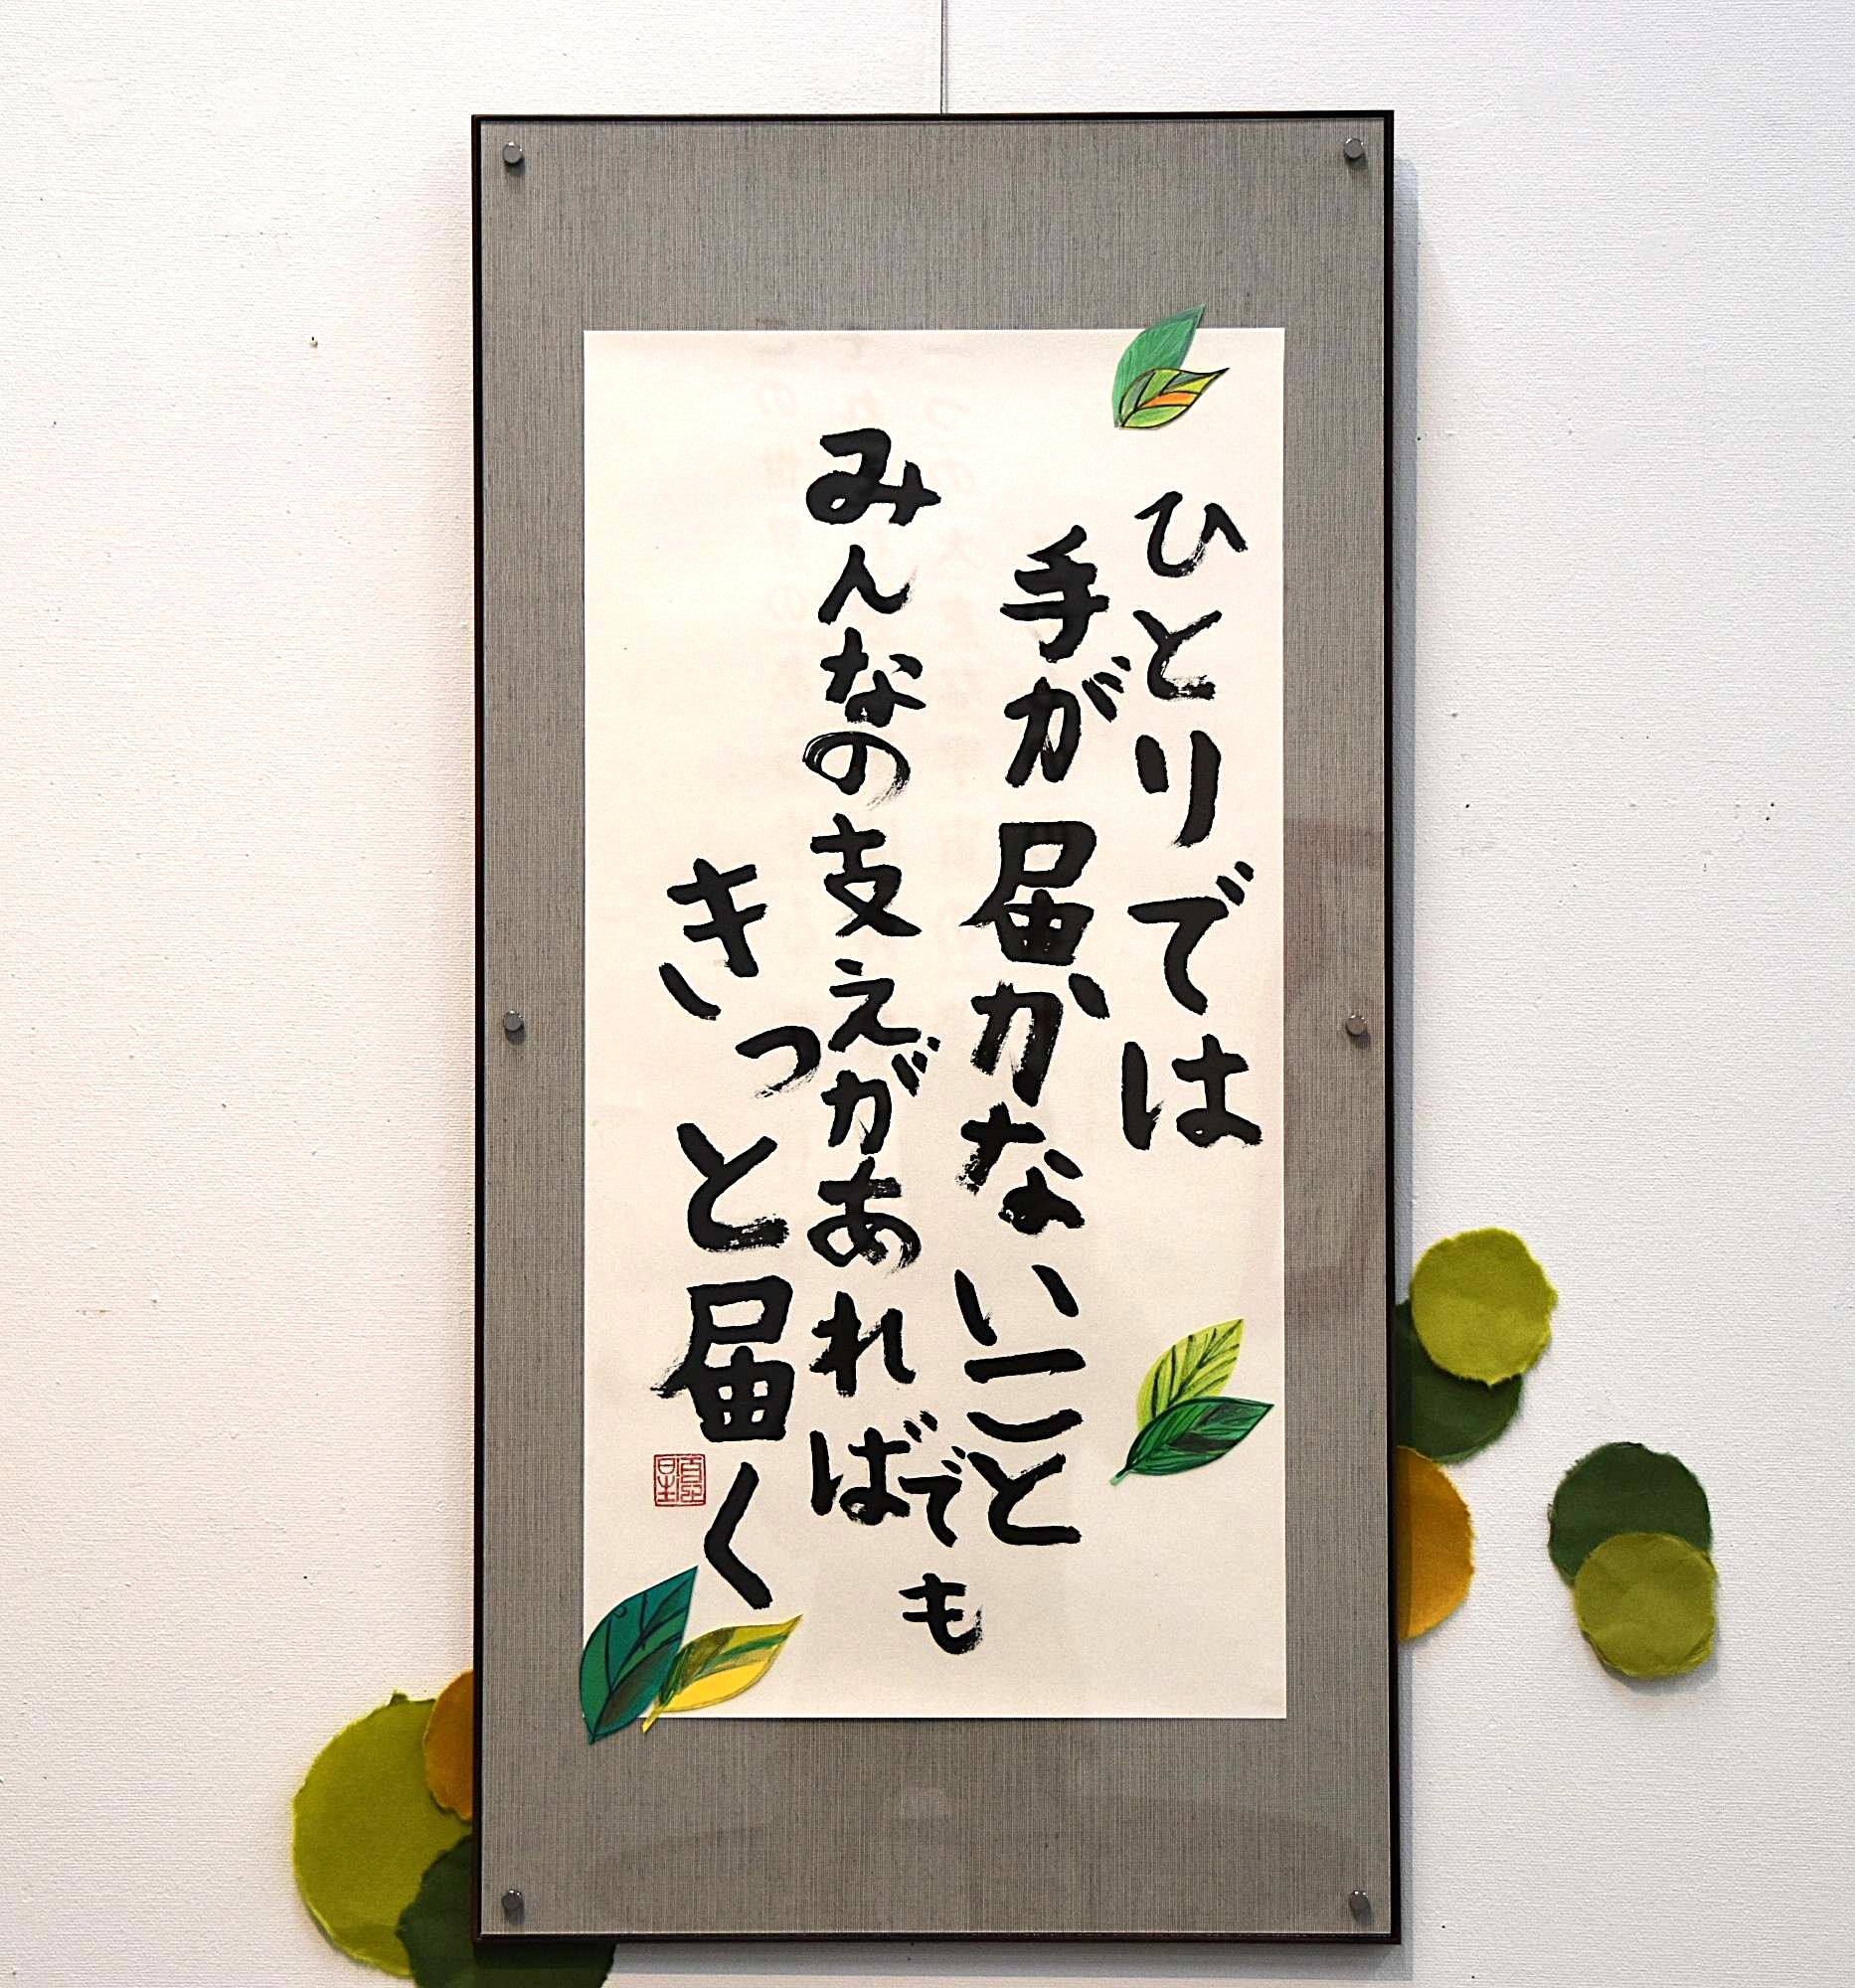 ひとりでは
手が届かないことでも
みんなの支えがあれば
きっと届く